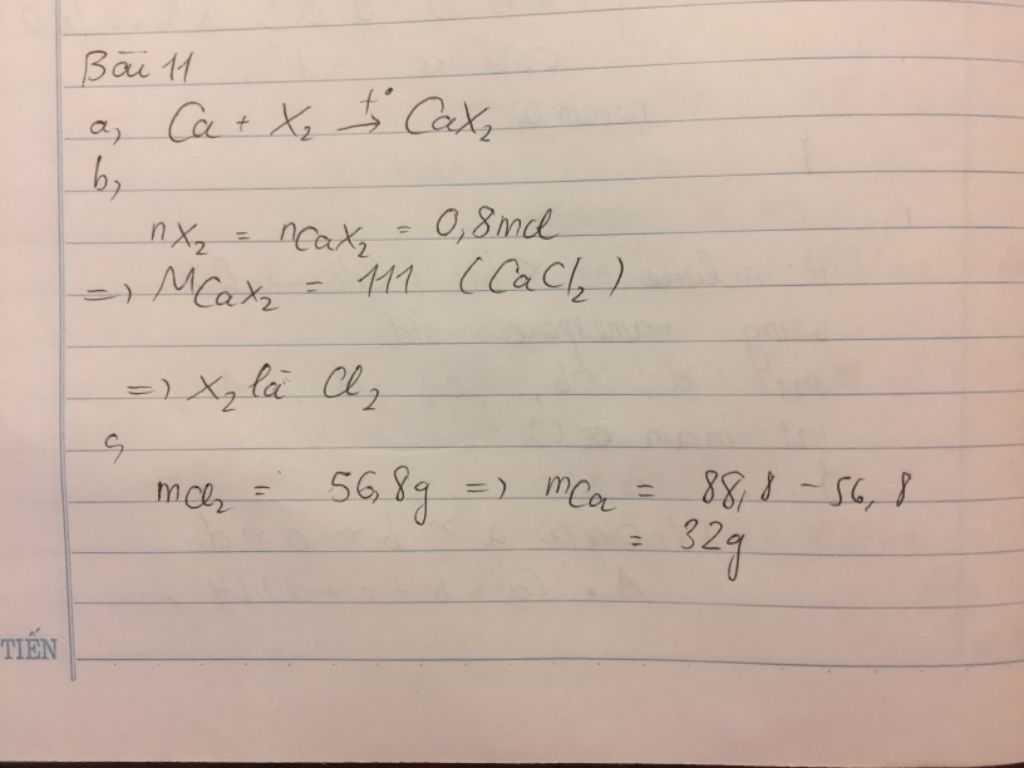 Bài 11
a, Ca + X₂ →t° CaX₂
b,
nX₂ = nCaX₂ = 0,8mol
=> MCaX₂ = 111 (CaCl₂)
=> X₂ là Cl₂
c,
mCl₂ = 56,8g => mCa = 88,8 - 56,8
= 32g
TIẾN